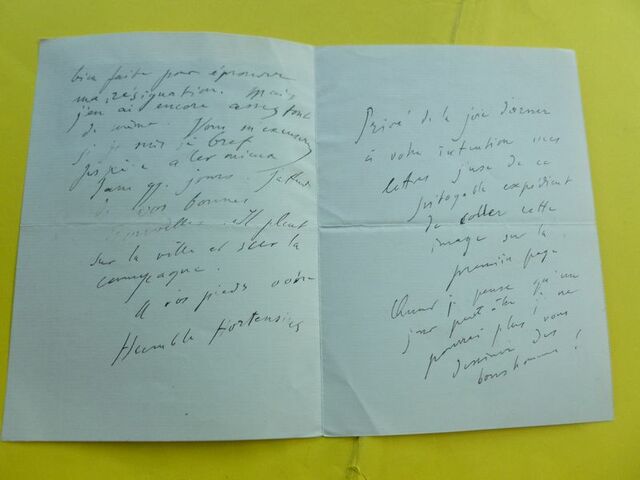 bien faite pour éprouver
ma résignation. Mais
j'en ai encore assez tout
de même. Vous m'excuserez
si je suis si bref
j'espère aller mieux
dans qq. jours. J'attends
de vos bonnes
nouvelles. Il pleut
sur la ville et sur la
campagne.
A vos pieds votre
Humble Hortensius
Privé de la joie d'orner
à votre intention mes
lettres j'use de ce
pitoyable expédient
de coller cette
image sur la
première page
Quand je pense qu'un
jour peut être je ne
pourrai plus vous
dessiner des
bonshommes !